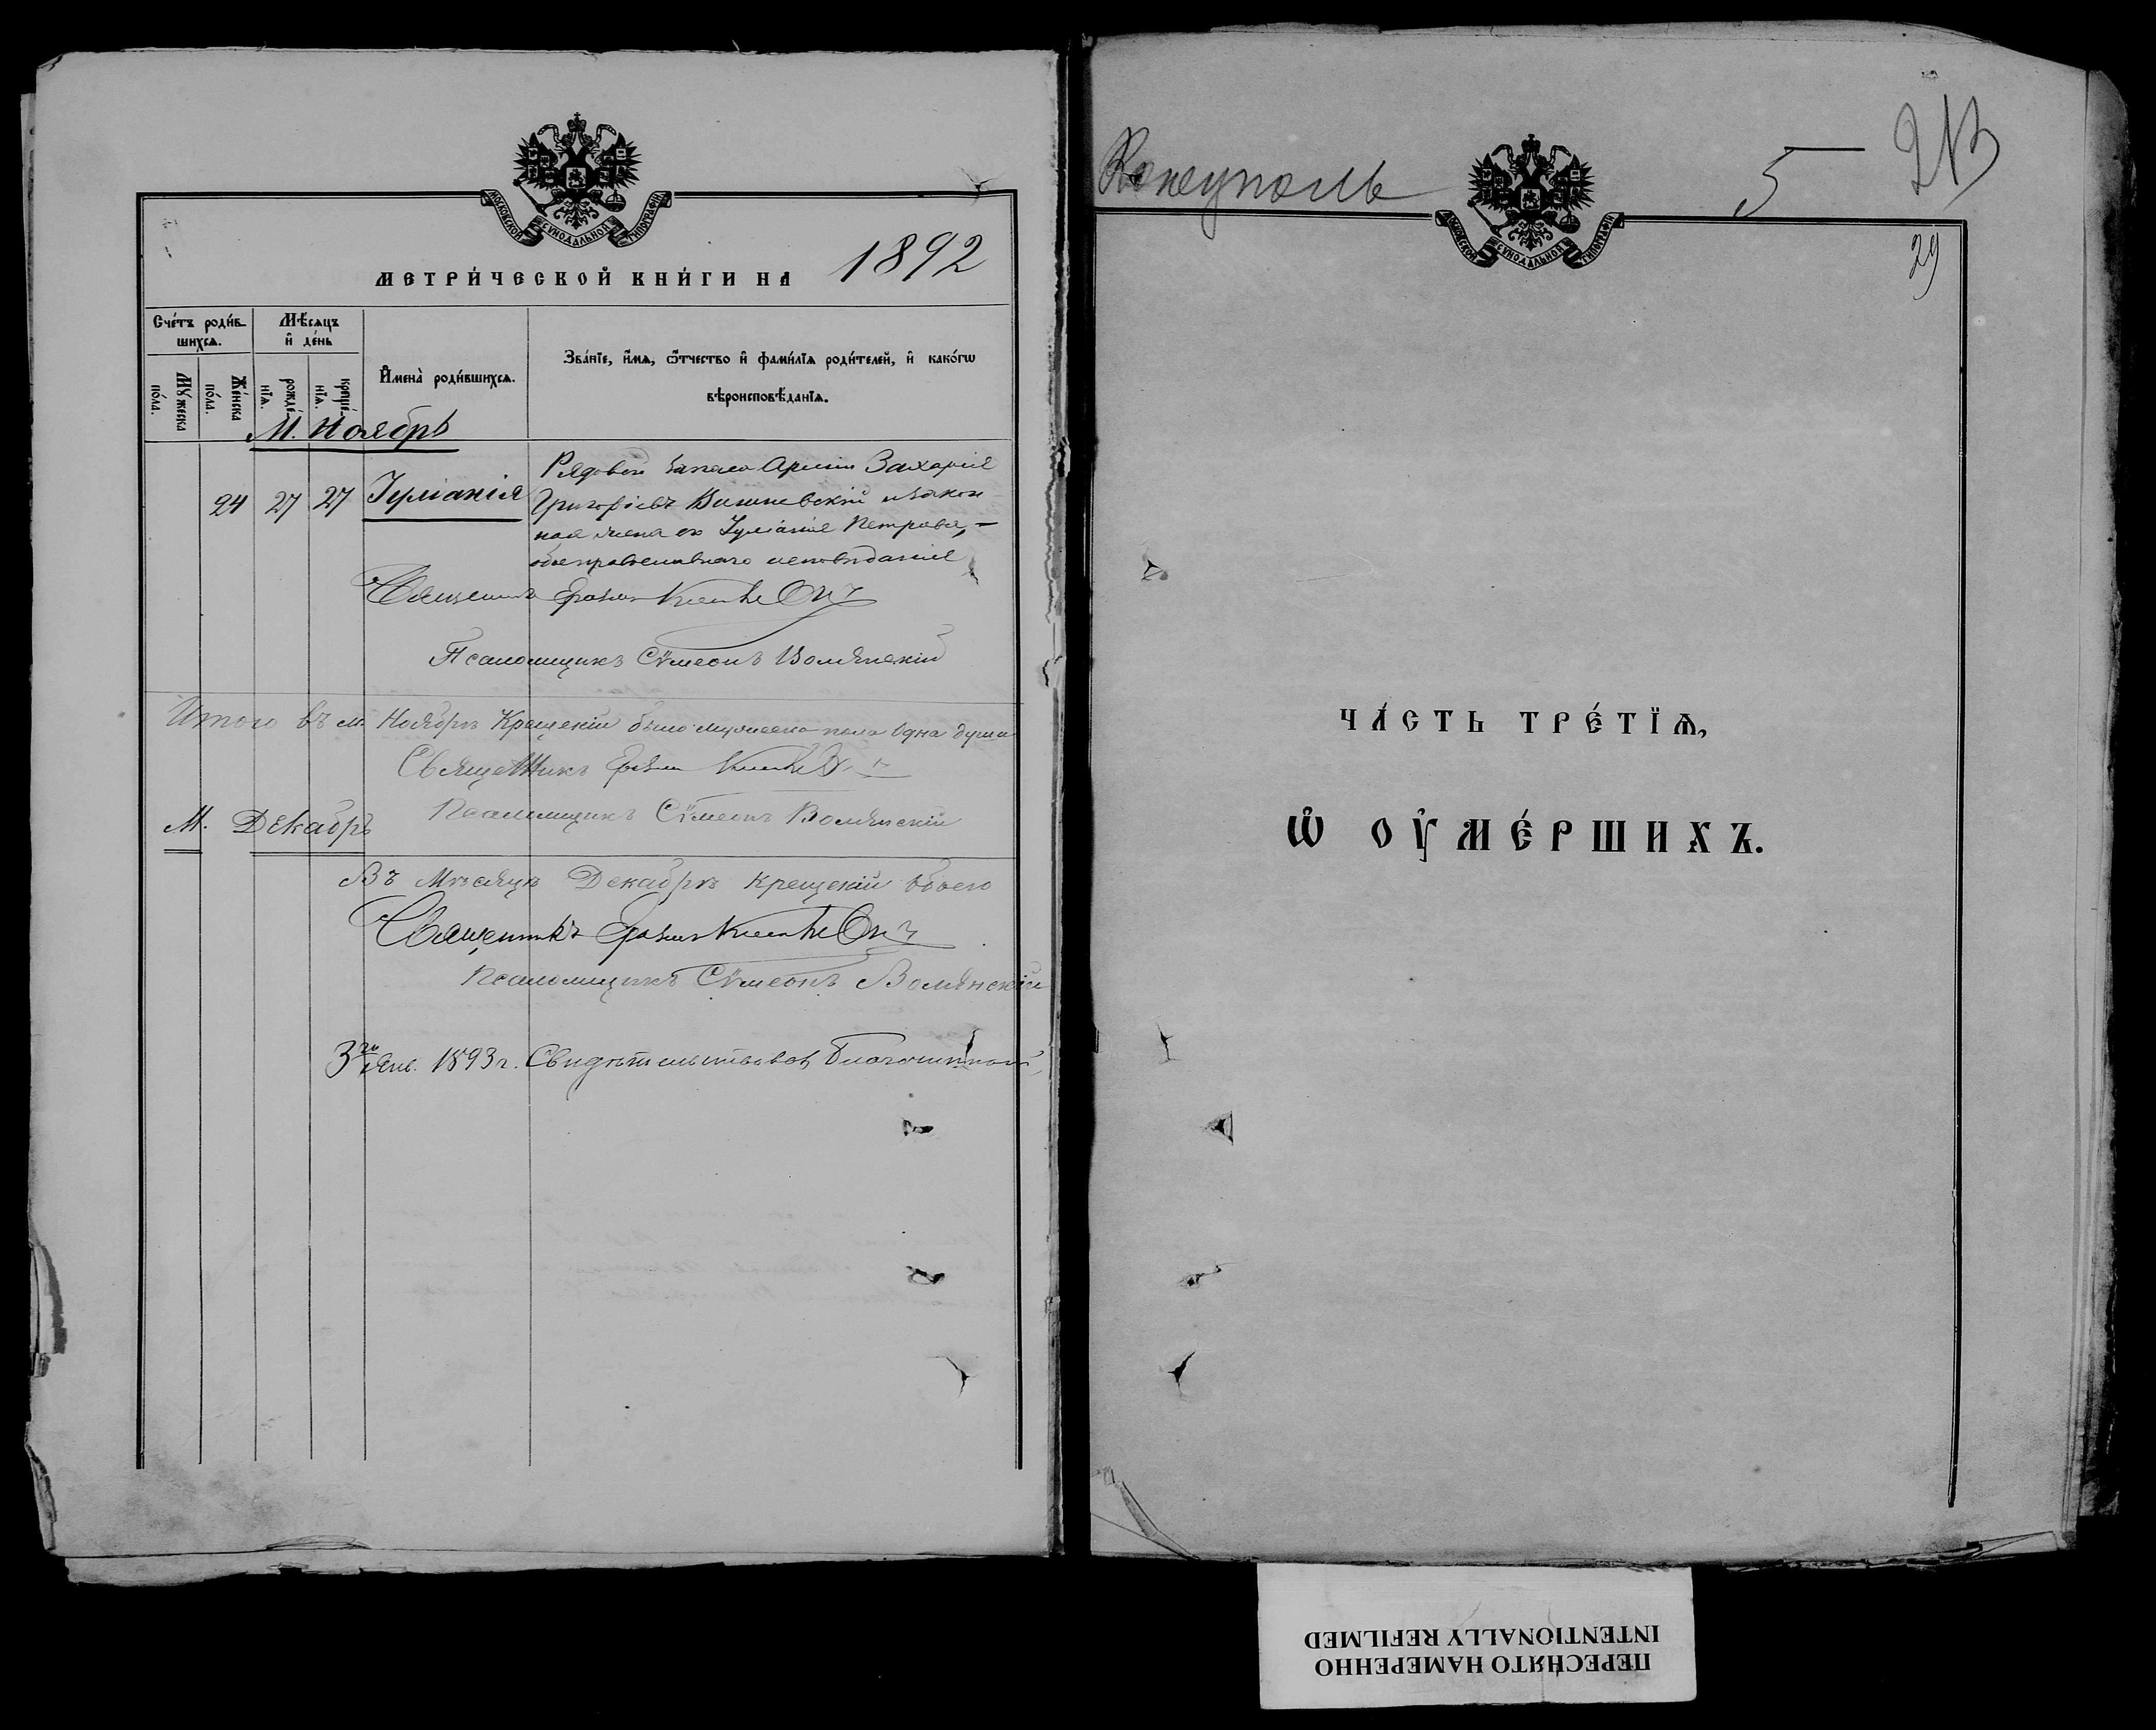 МОСКОВСКОЙ СУНОДАЛЬНОЙ ТИПОГРАФІИ
МЕТРИ́ЧЕСКОЙ КНИ́ГИ НА 1892
Сче́тъ роди́в-
шихсѧ.
Мѣ́сѧцъ
и҆ де́нь
И҆мена̀ роди́вшихсѧ.
Зва́нїе, и҆́мѧ, ѻ҆́тчество и҆ фами́лїѧ роди́телей, и҆ како́гѡ
вѣроисповѣ́данїѧ.
Мꙋ́жеска
по́ла.
Же́нска
по́ла.
рожде́-
нїѧ.
креще́-
нїѧ.
М. Ноябрь
24 27 27 Іуліанія
Рядовой запаса Арміи Захарія
Григоріевъ Вишневскій и закон
ная жена его Іуліанія Петрова, –
оба православнаго исповѣданія
Священникъ
Псаломщикъ Сѵмеонъ Волянскій
Итого въ м. Ноябрѣ Крещеній было женска пола одна душа
Священникъ
Псаломщикъ Сѵмеонъ Волянскій
М. Декабрь
Въ Мѣсяцѣ Декабрѣ Крещеній
Священникъ
Псаломщикъ Сѵмеонъ Волянскій
3го Янв. 1893 г. Свидѣтельствовалъ Благочинный
Конецполь 5 213
МОСКОВСКОЙ СУНОДАЛЬНОЙ ТИПОГРАФІИ
29
ЧА́СТЬ ТРЕ́ТЇѦ,
Ѡ҆ ОУ҆МЕ́РШИХЪ.
ПЕРЕСНЯТО НАМЕРЕННО
INTENTIONALLY REFILMED